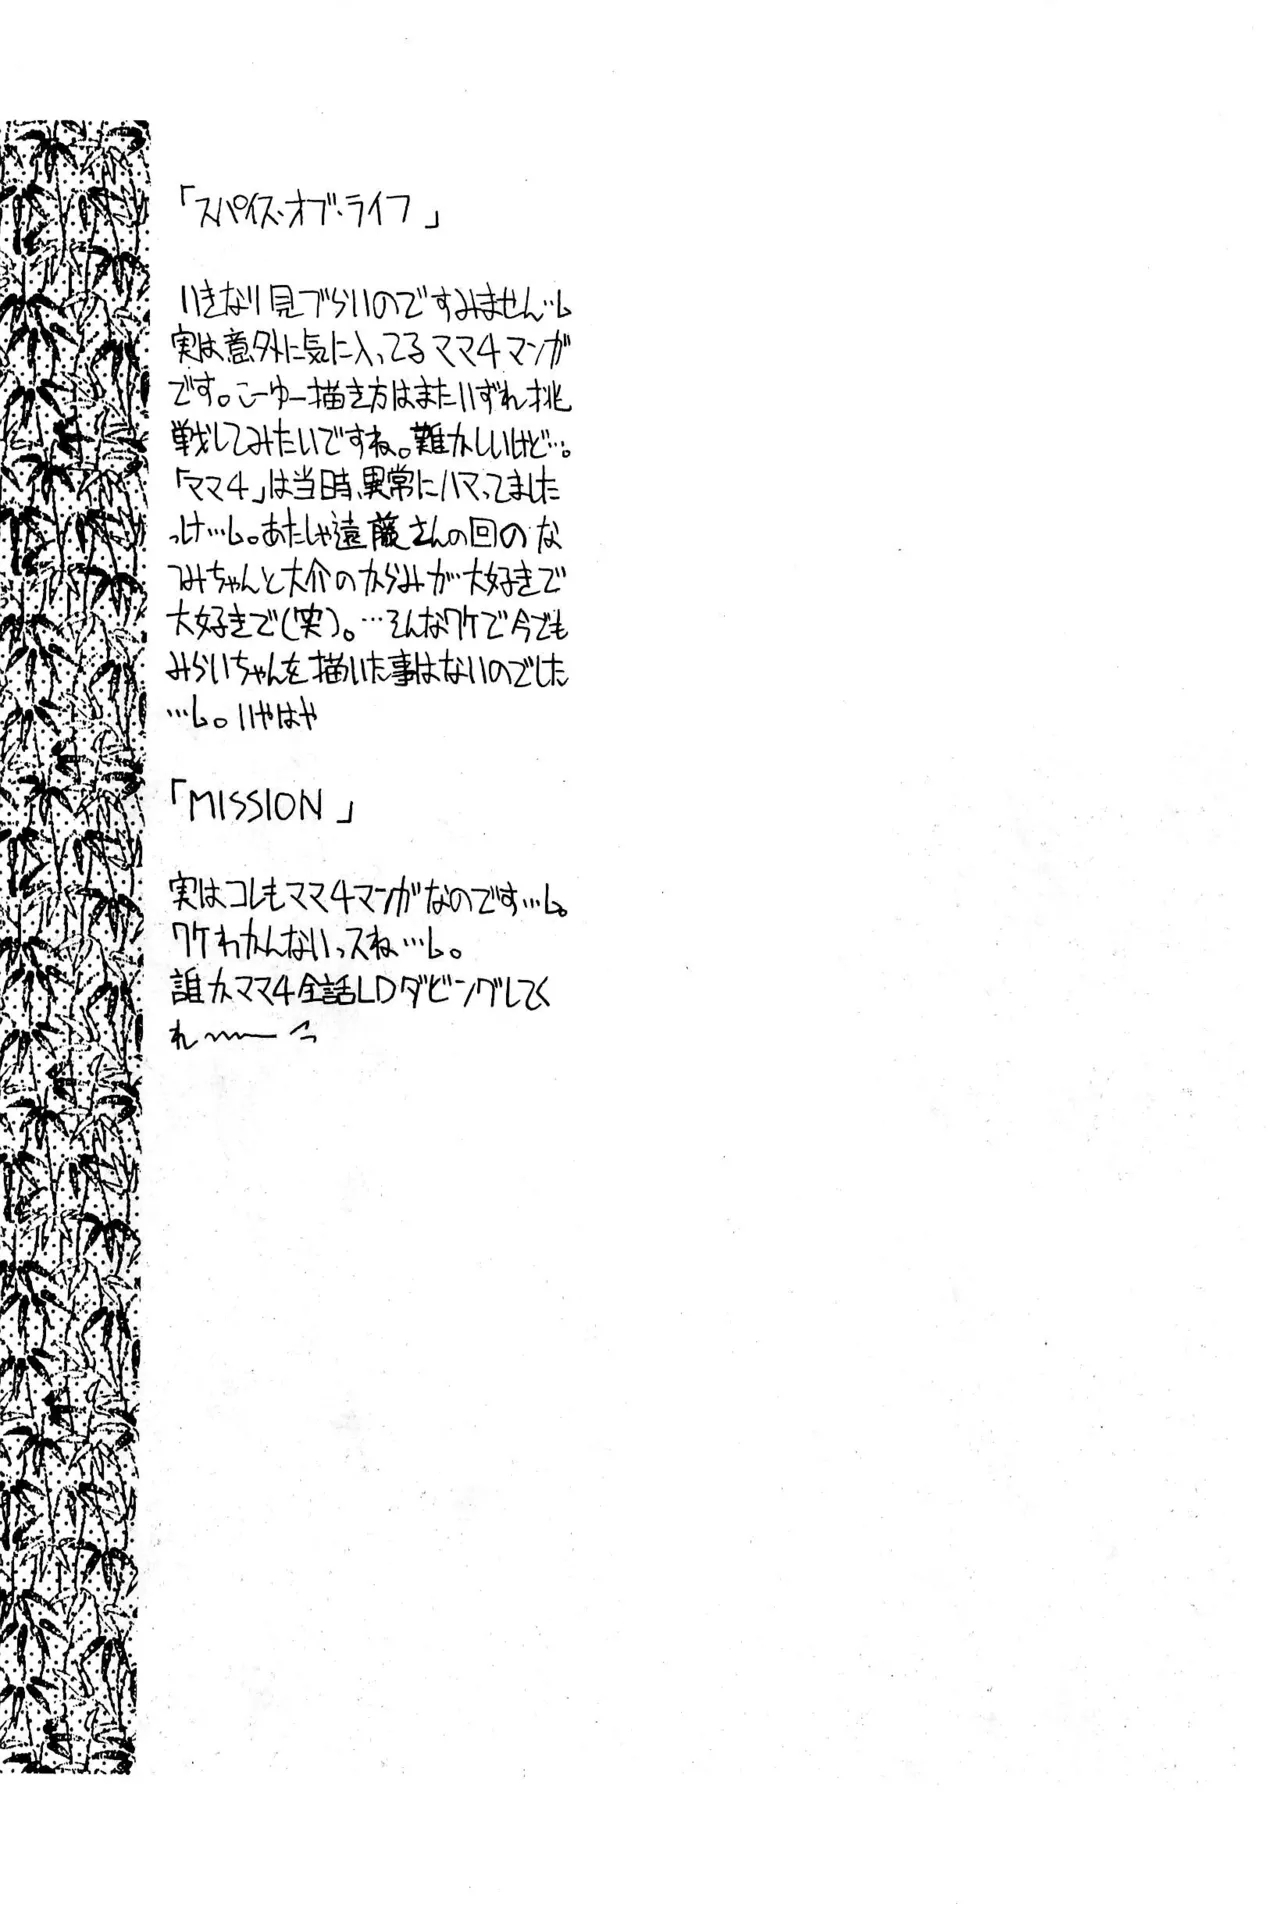 「スパイス・オブ・ライフ」
いきなり見づらいのですみません…
実は意外に気に入ってるママ4マンガ
です。こーゆー描き方はまたいずれ挑
戦してみたいですね。難かしいけど…。
「ママ4」は当時、異常にハマってました
っけ…。あたしゃ遠藤さんの回のな
つみちゃんと大介のからみが大好きで
大好きで(笑)。…そんなワケで今でも
みらいちゃんを描いた事はないのでした
…。いやはや
「MISSION」
実はコレもママ4マンガなのです…。
ワケわかんないっスね…。
誰かママ4全話LDダビングしてく
れ〜〜ー